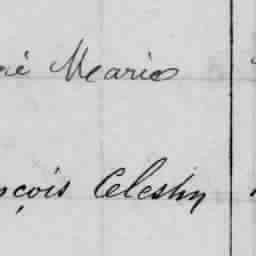 né Marie
nçois Celestin